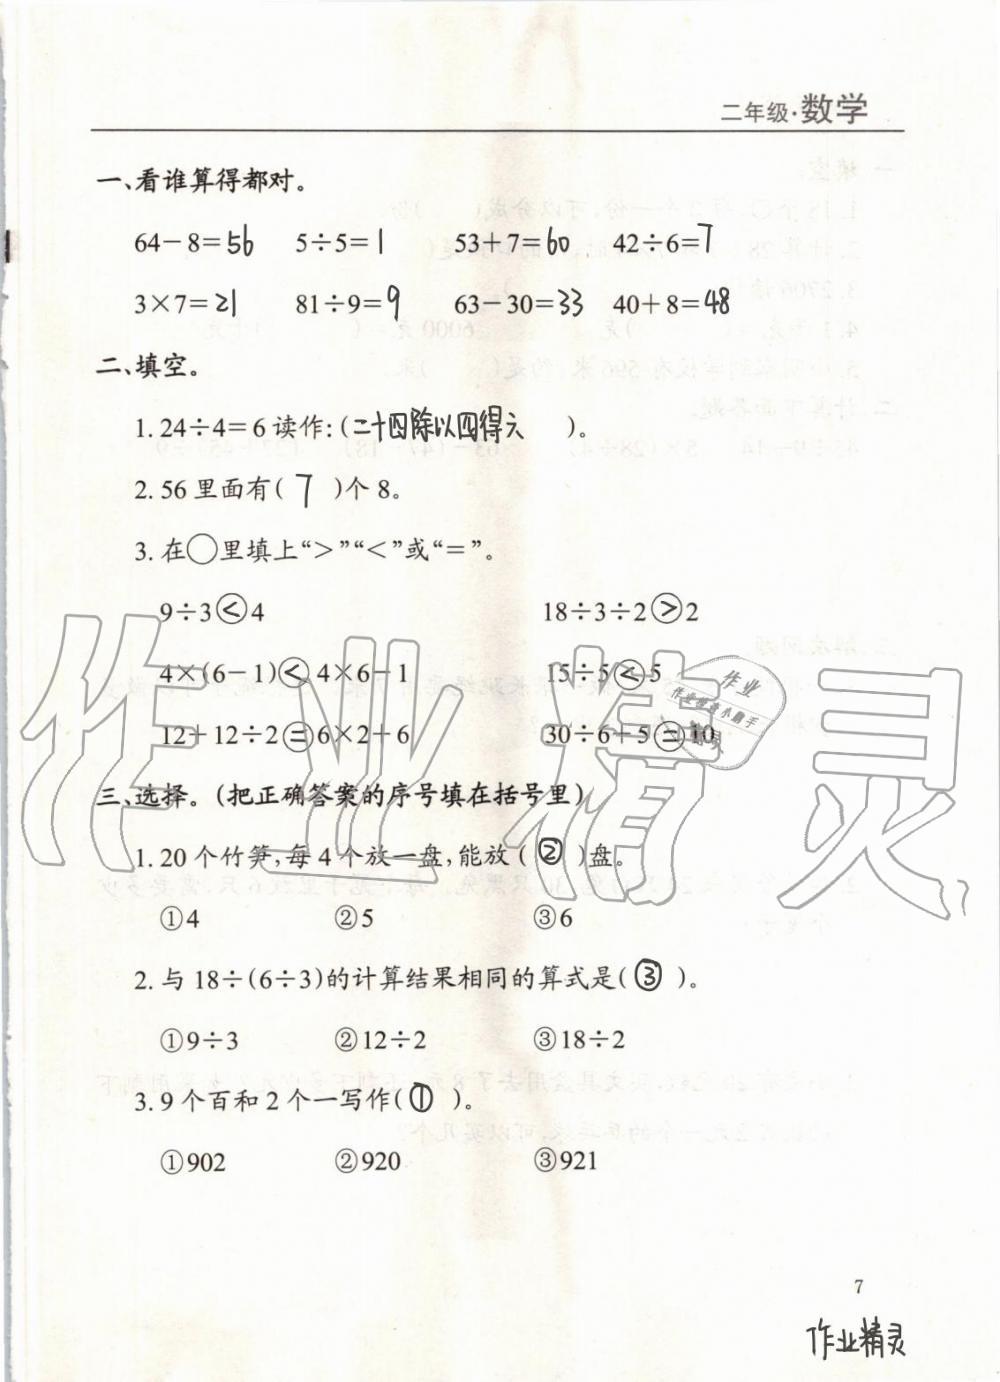 二年级·数学
一、看谁算得都对。
64－8＝56 5÷5＝1 53＋7＝60 42÷6＝7
3×7＝21 81÷9＝9 63－30＝33 40＋8＝48
二、填空。
1. 24÷4＝6读作:(二十四除以四得六)。
2. 56里面有( 7 )个8。
3. 在○里填上“＞”“＜”或“＝”。
9÷3＜4 18÷3÷2＞2
4×(6－1)＜4×6－1 15÷5＜5
12＋12÷2＝6×2＋6 30÷6＋5＝10
三、选择。(把正确答案的序号填在括号里)
1. 20个竹笋,每4个放一盘,能放( ② )盘。
①4 ②5 ③6
2. 与18÷(6÷3)的计算结果相同的算式是( ③ )。
①9÷3 ②12÷2 ③18÷2
3. 9个百和2个一写作( ① )。
①902 ②920 ③921
7
作业精灵
作业精灵
作业
作业检查小助手